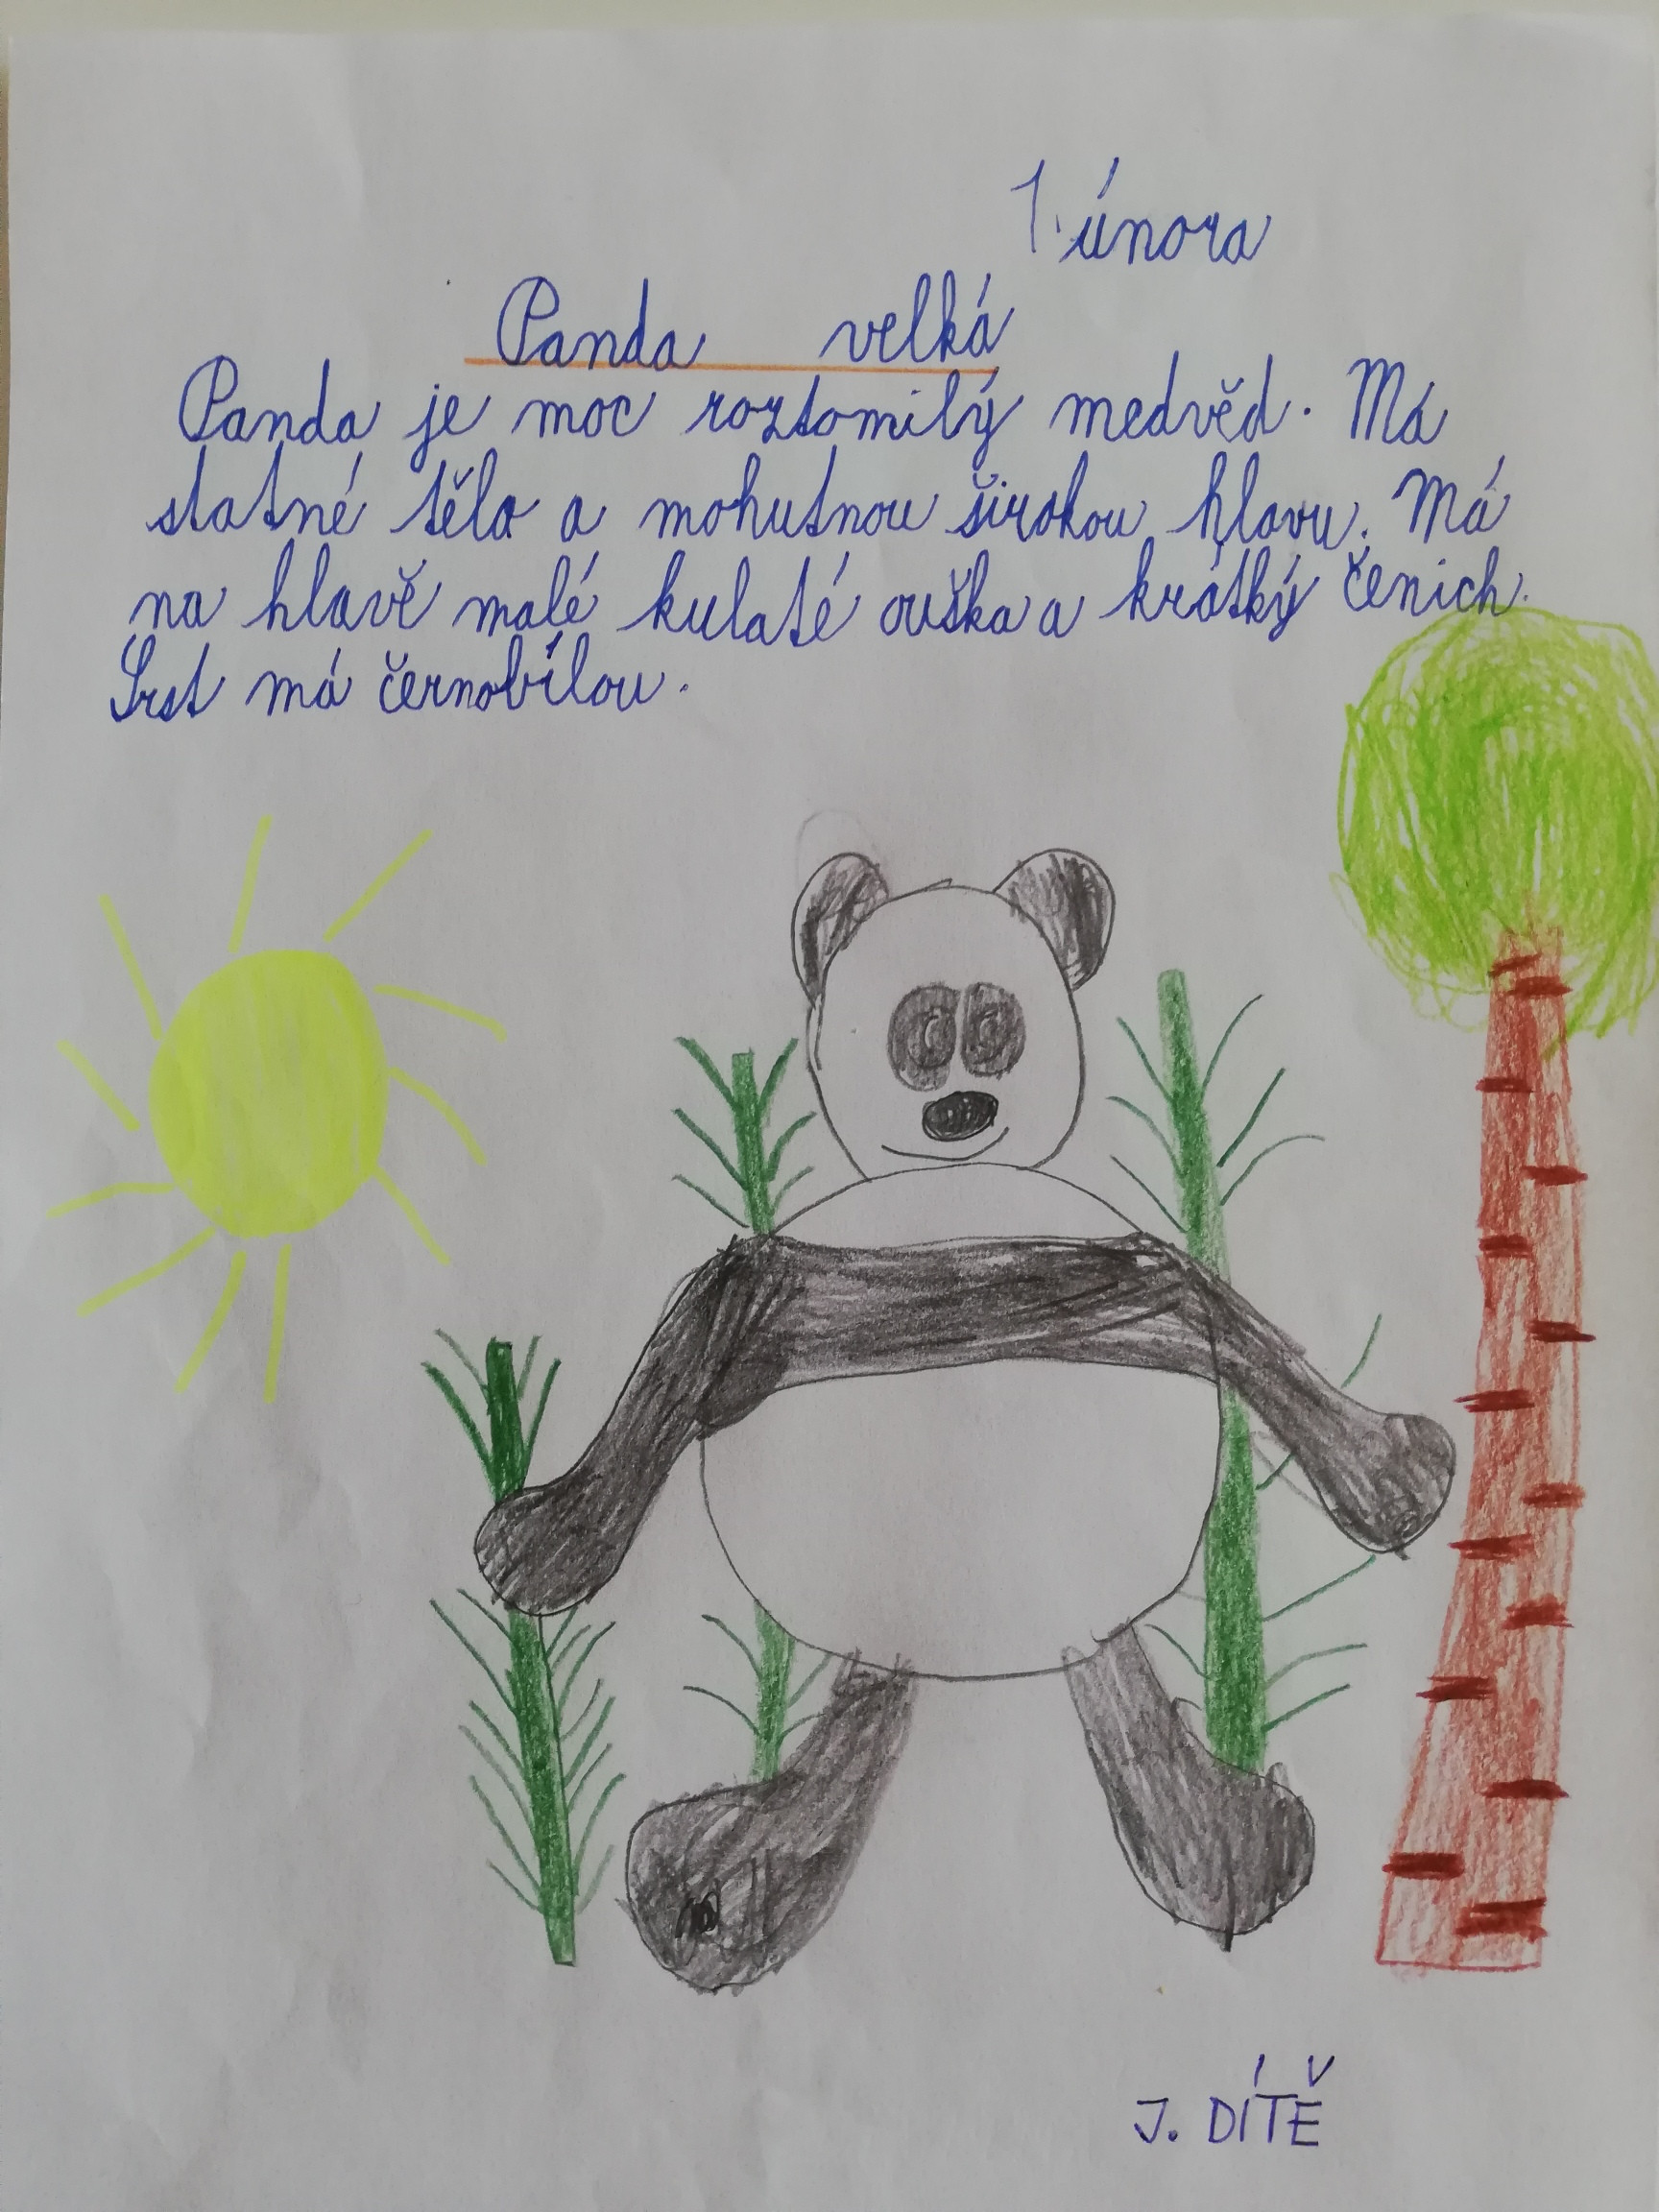 1. února
Panda velká
Panda je moc roztomilý medvěd. Má
statné tělo a mohutnou širokou hlavu. Má
na hlavě malé kulaté ouška a krátký čenich.
Srst má černobílou.
J. DÍTĚ